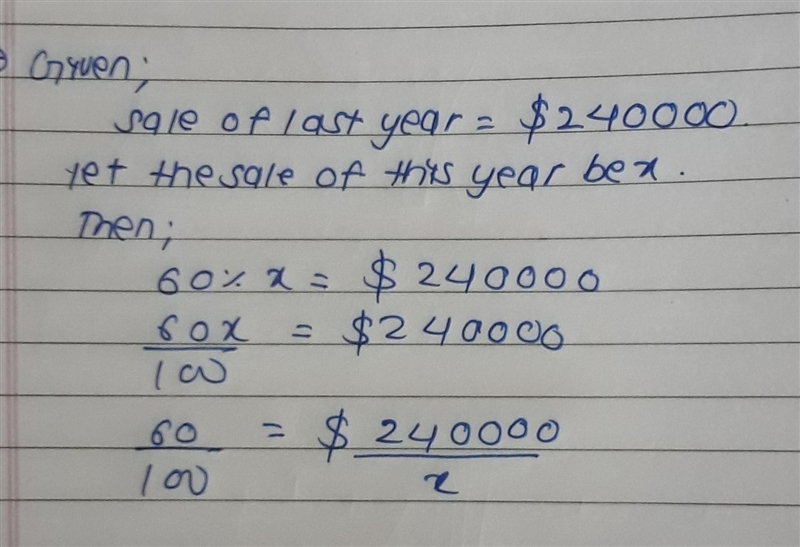 Given;
sale of last year = $240000.
let the sale of this year be x.
Then;
60% x = $ 240000
60x/100 = $240000
60/100 = $ 240000/x